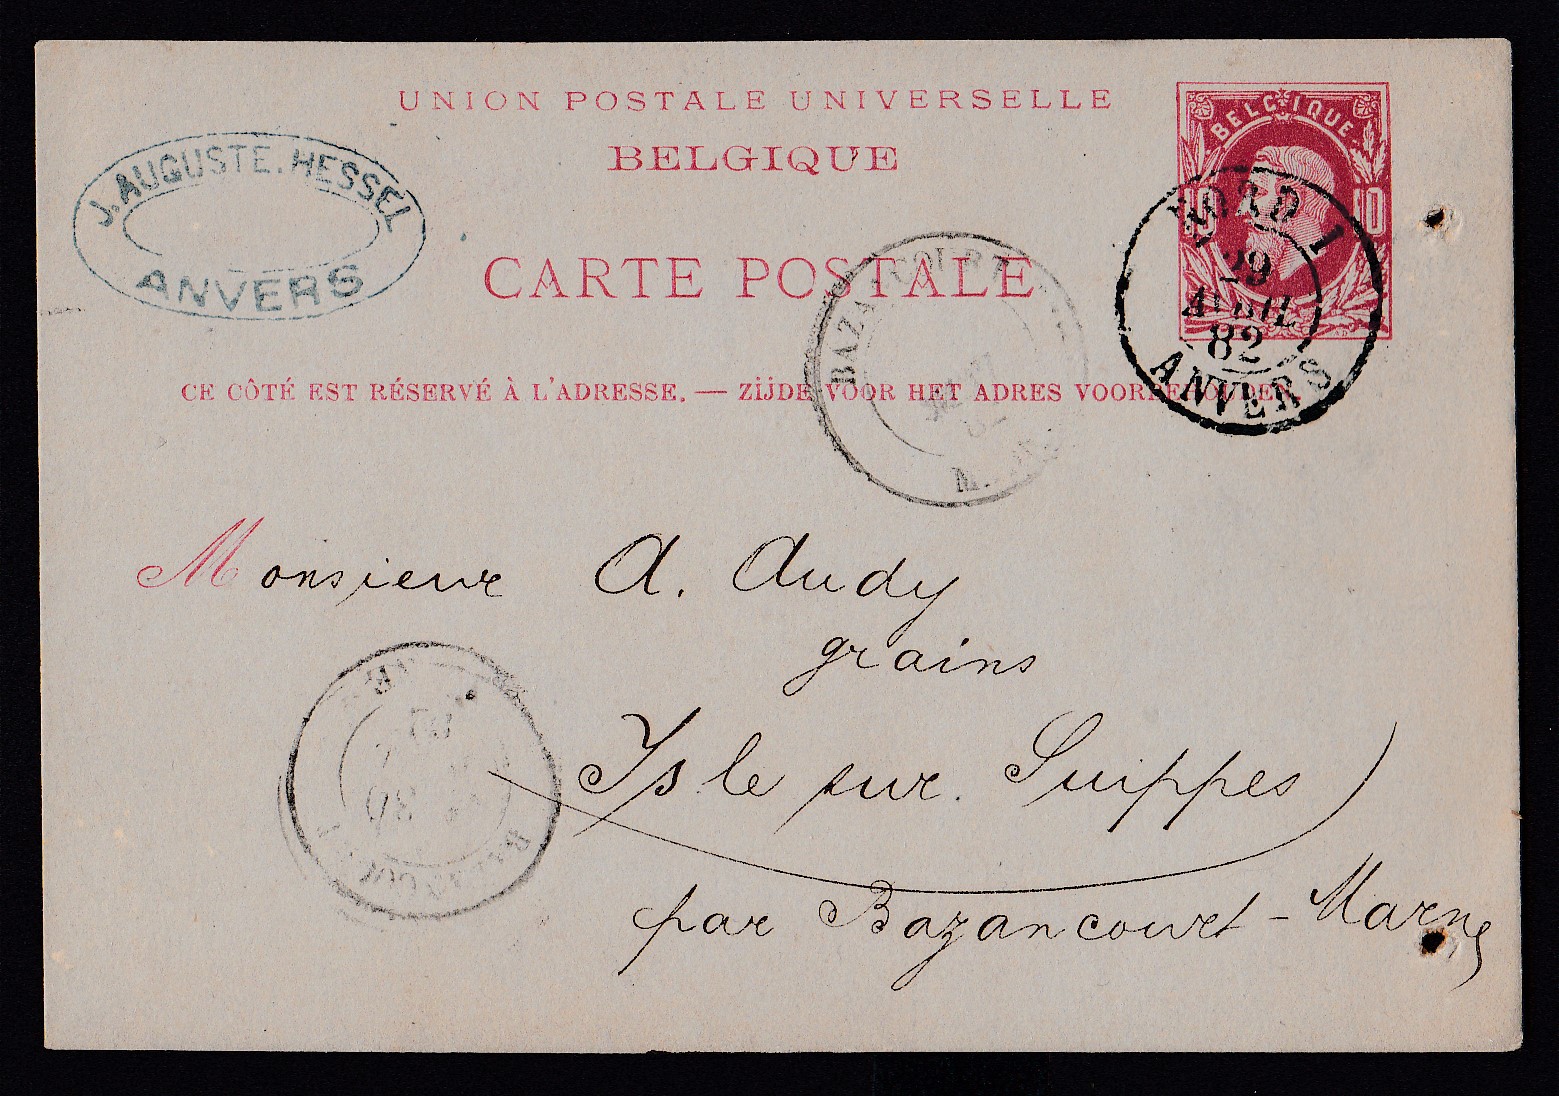 UNION POSTALE UNIVERSELLE
BELGIQUE
CARTE POSTALE
CE CÔTÉ EST RÉSERVÉ À L'ADRESSE. — ZIJDE VOOR HET ADRES VOORBEHOUDEN
J. AUGUSTE. HESSEL
ANVERS
BELGIQUE
10 10
NORD 1
29
AVRIL
82
ANVERS
Monsieur A. Audy
grains
Isle sur Suippes
par Bazancourt - Marne